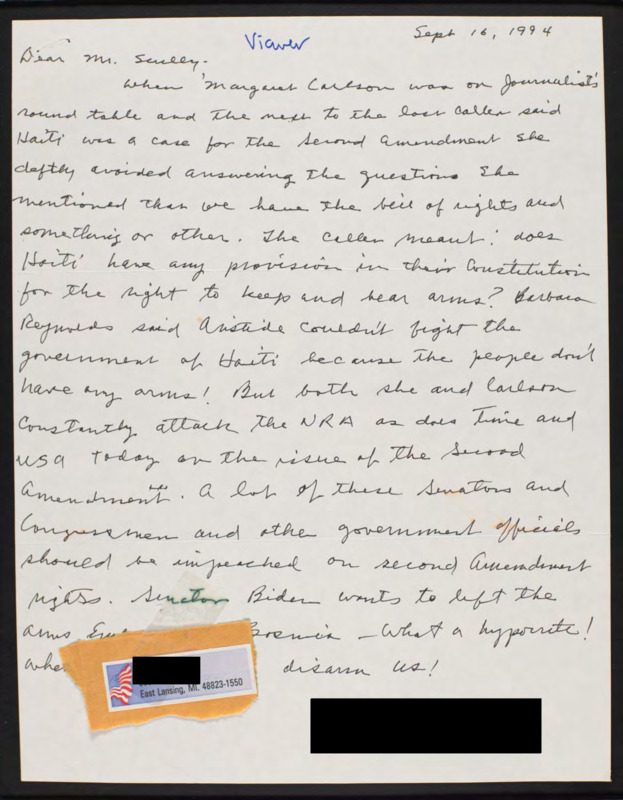 Viewer
Sept 16, 1994
Dear Mr. Scully.
When Margaret Carlson was on Journalist's
round table and the next to the last caller said
Haiti was a case for the Second Amendment she
deftly avoided answering the questions She
mentioned than we have the bill of rights and
something or other. The caller meant: does
Haiti have any provision in their Constitution
for the right to keep and bear arms? Barbara
Reynolds said Aristide couldn't fight the
government of Haiti because the people don't
have any arms! But both she and Carlson
Constantly attack the NRA as does Time and
USA Today on the issue of the Second
Amendment. A lot of these Senators and
Congressmen and other government officials
should be impeached on second Amendment
rights. Senator Biden wants to left the
arms Bosnia - What a hypocrite!
disarm us!
East Lansing, MI. 48823-1550